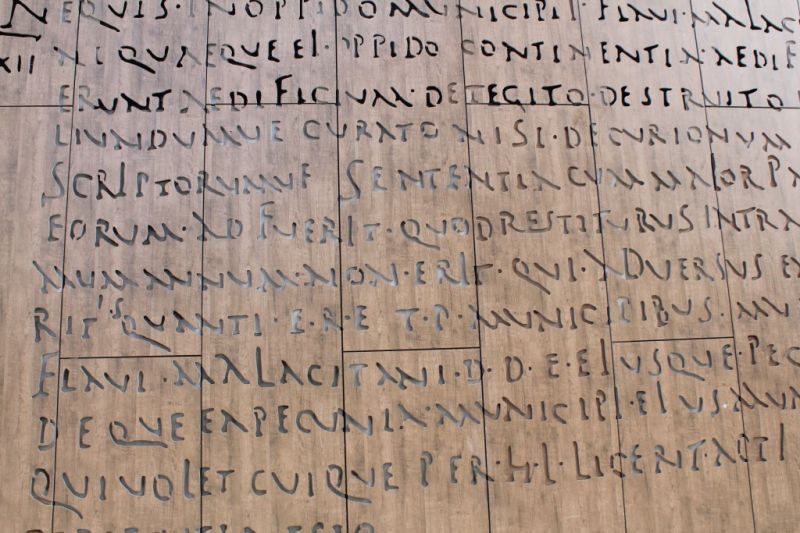 NEQUIS·IN OPPIDO MUNICIPI·FLAVI·MALAC
XII NI QUAEQUE EI·OPPIDO CONTINENTIA·AEDIF
ERUNT AEDIFICIUM·DETEGITO·DESTRUITO
LIUNDUMVE CURATO NISI·DECURIONUM
SCRIPTORUMVE SENTENTIA CUM MAIOR PA
EORUM·AD FUERIT·QUOD RESTITURUS INTRA
MUM ANNUM·NON·ERIT·QUI·ADVERSUS EA
RIT'S QUANTI·E·R·E T·P·MUNICIPIBUS·MU
FLAVI·MALACITANI·D·D·E·EIUSQUE·PEC
DEQUE EA PECUNIA·MUNICIPI·EIUS·MUN
QUI VOLET CUIQUE PER·H·L·LICEBIT·ACTI